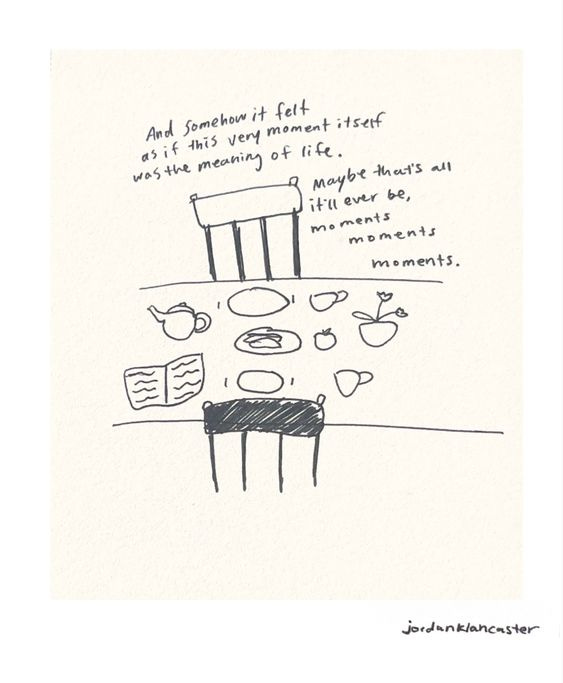 And somehow it felt
as if this very moment itself
was the meaning of life.
Maybe that's all
it'll ever be,
moments
moments
moments.
jordanklancaster